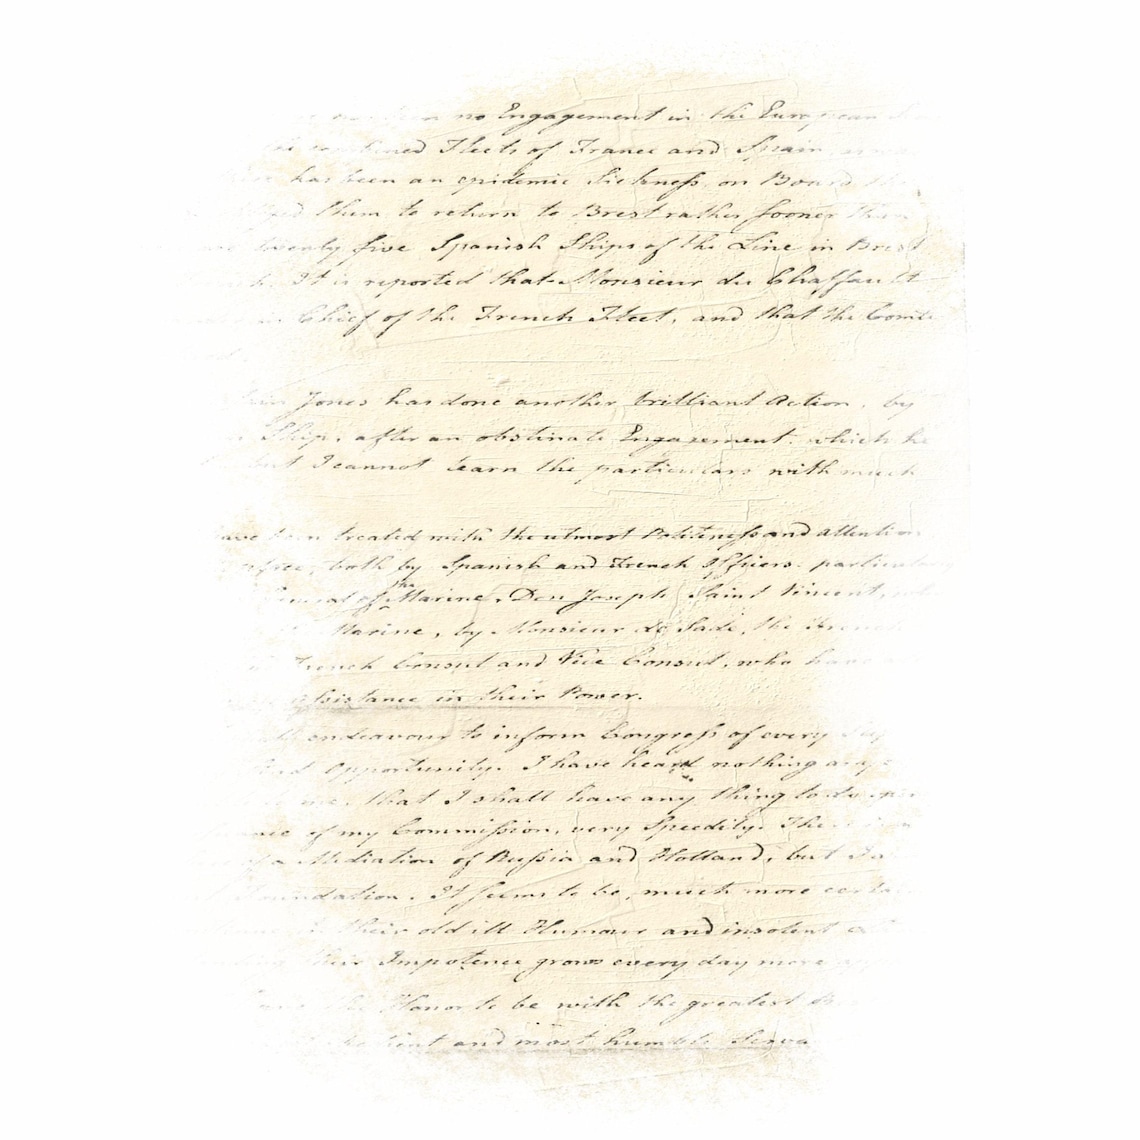 no Engagement in the European
combined Fleets of France and Spain,
has been an epidemic Sickness, on Board the
them to return to Brest rather sooner than
twenty five Spanish Ships of the Line in Brest
It is reported that Monsieur du Chaffault
Chief of the French Fleet, and that the Comte
Jones has done another brilliant Action, by
Ship, after an obstinate Engagement. which he
but I cannot learn the particulars with much
have been treated with the utmost Politeness and attention
both by Spanish and French Officers. particularly
General of the Marine, Don Joseph Saint Vincent,
Marine, by Monsieur de Sade, the French
French Consul and Vice Consul, who have
assistance in their Power.
endeavour to inform Congress of every
Opportunity. I have heard nothing
me, that I shall have any thing to do
of my Commission, very Speedily. There
of a Mediation of Russia and Holland, but
Foundation. It seems to be, much more
in their old ill Humour and insolent
their Impotence grows every day more
the Honor to be with the greatest
and most humble